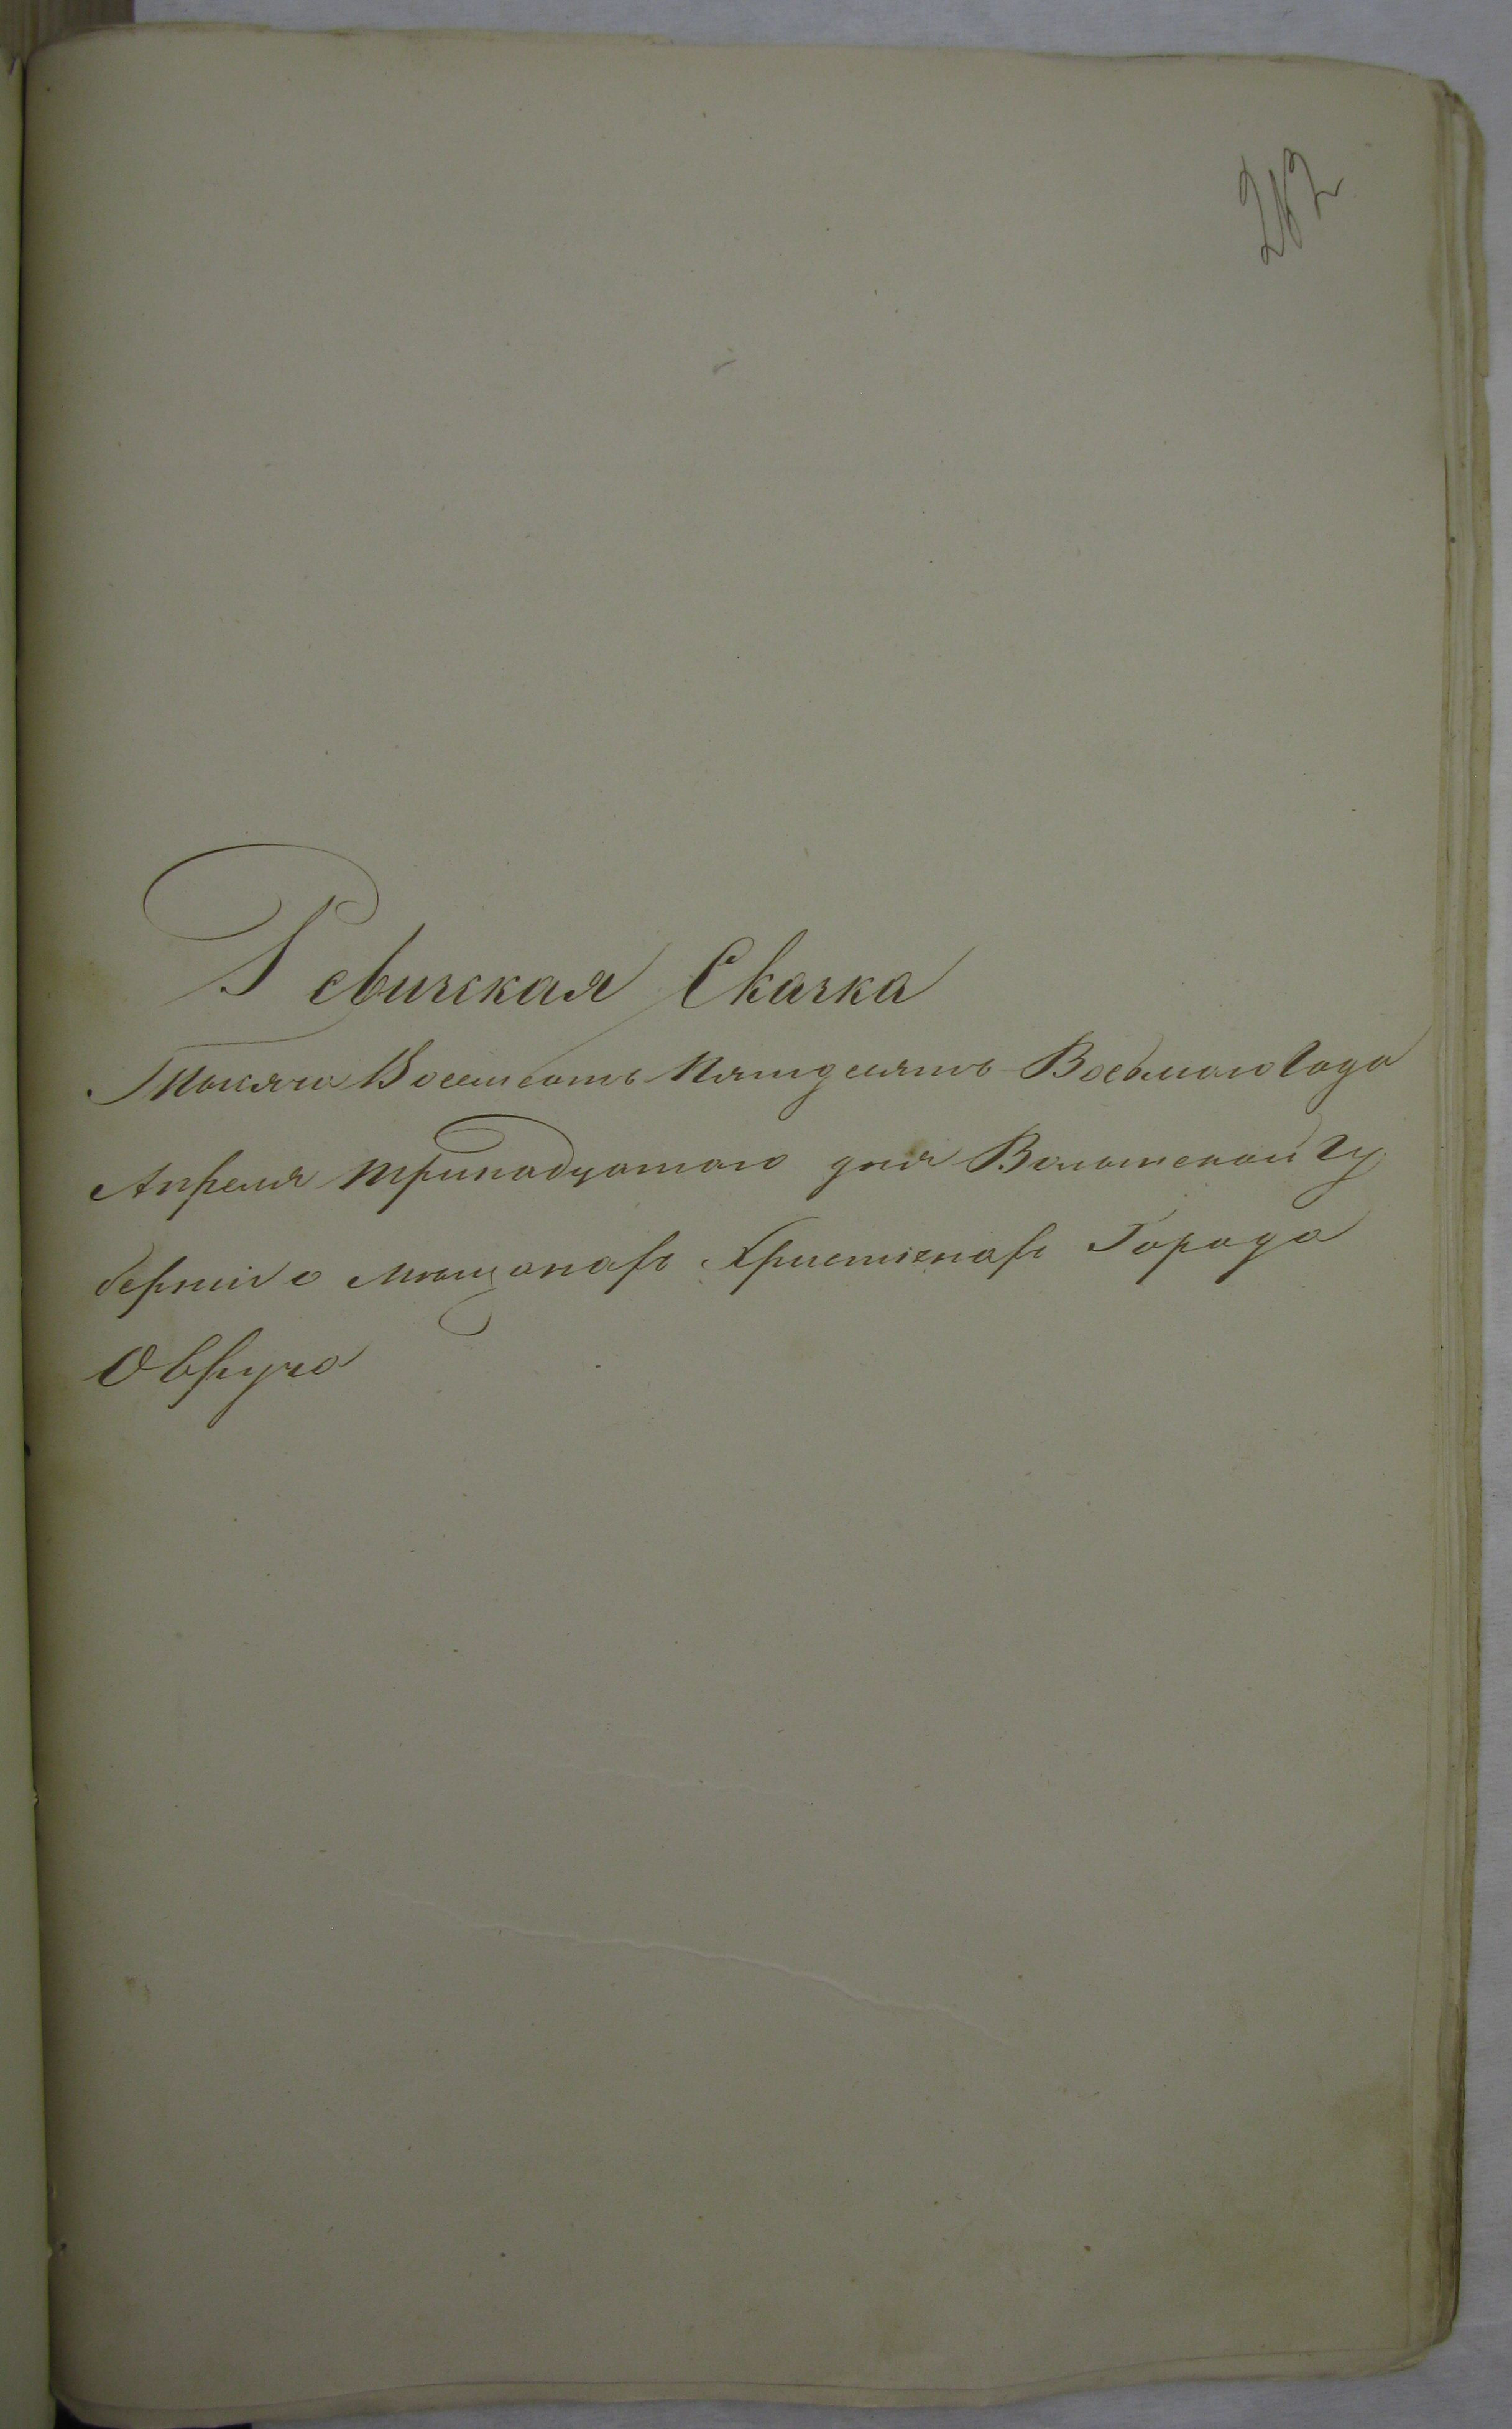 Ревизская Сказка
Тысяча Восемсотъ Пятдесятъ Восьмого Года
Апреля тринадцатого дня Волынской Гу
берніи о мѣщанахъ Христіенахъ Города
Овруча